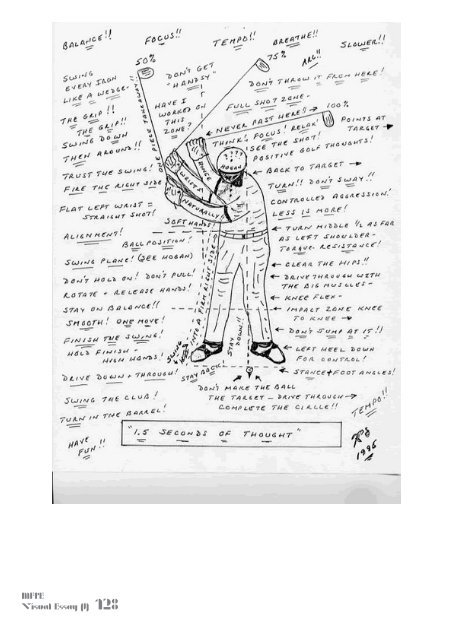 BALANCE!! FOCUS!! TEMPO!! BREATHE!! SLOWER!!
50%
75%
ARG!!
SWING
EVERY IRON
LIKE A WEDGE.
DON'T GET
"HANDSY"
DON'T THROW IT FROM HERE!
THE GRIP!!
THE GRIP!!
HAVE I
WORKED ON
THIS
ZONE?
FULL SHOT ZONE.
NEVER PAST HERE!! → 100%
POINTS AT
TARGET →
SWING DOWN
THEN AROUND!!
THINK! FOCUS! RELAX!
SEE THE SHOT!
POSITIVE GOLF THOUGHTS!
TRUST THE SWING!
FIRE THE RIGHT SIDE
WRISTS
HINGE
NATURALLY!
????
HOGAN
← BACK TO TARGET →
TURN!! DON'T SWAY!!
CONTROLLED AGGRESSION!
LESS IS MORE!
FLAT LEFT WRIST =
STRAIGHT SHOT!
SOFT HANDS
ALIGNMENT!
BALL POSITION!
← TURN MIDDLE ½ AS FAR
AS LEFT SHOULDER -
TORQUE. RESISTANCE!
SWING PLANE! (SEE HOGAN)
← CLEAR THE HIPS!!
DON'T HOLD ON! DON'T PULL!
ROTATE + RELEASE HANDS!
← DRIVE THROUGH WITH
THE BIG MUSCLES -
← KNEE FLEX -
STAY ON BALANCE!!
← IMPACT ZONE KNEE
TO KNEE →
SMOOTH! ONE MOVE!
← DON'T JUMP AT IT!!
FINISH THE SWING!
HOLD FINISH -
HIGH HANDS!
INTO A FIRM RIGHT SIDE
STAY
DOWN!!
← LEFT HEEL DOWN
FOR CONTROL!
DRIVE DOWN + THROUGH!
STAY BACK
← STANCE + FOOT ANGLES!
SWING THE CLUB!
DON'T MAKE THE BALL
THE TARGET - DRIVE THROUGH →
COMPLETE THE CIRCLE!!
TURN IN THE BARREL!
TEMPO!!
"1.5 SECONDS OF THOUGHT"
HAVE
FUN!!
1996
Visual Essay (I) 128